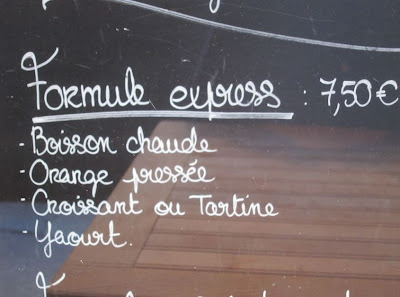 Formule express : 7,50€
- Boisson chaude
- Orange pressée
- Croissant ou Tartine
- Yaourt.